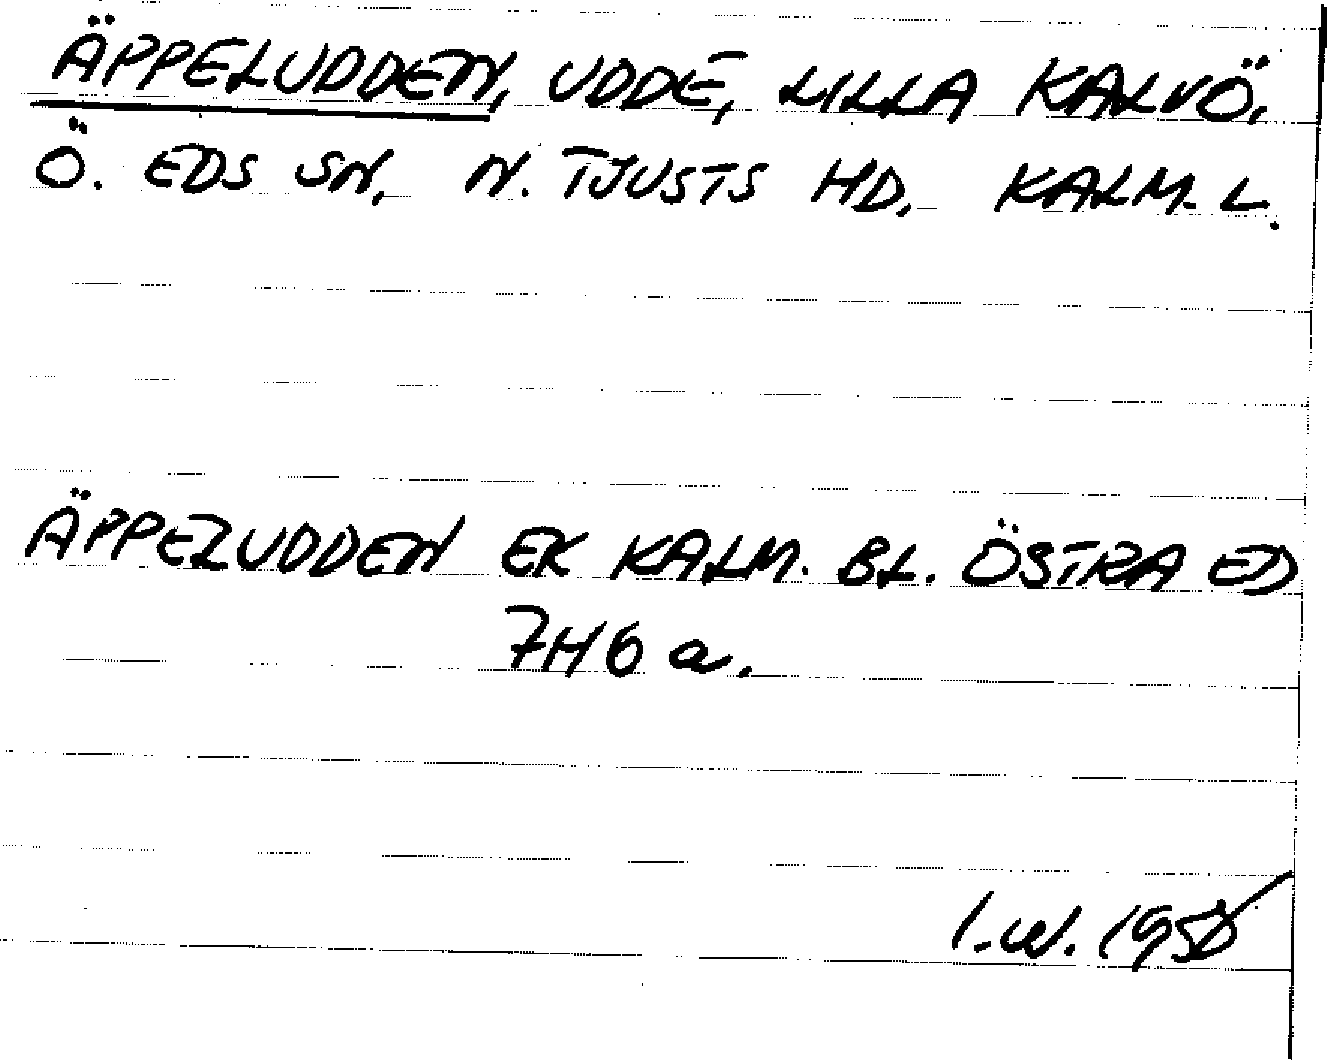 ÄPPELUDDEN, UDDE, LILLA KALVÖ,
Ö. EDS SN, N. TJUSTS HD, KALM. L.
ÄPPELUDDEN EK KALM. BL. ÖSTRA ED
7H6a.
I.W.